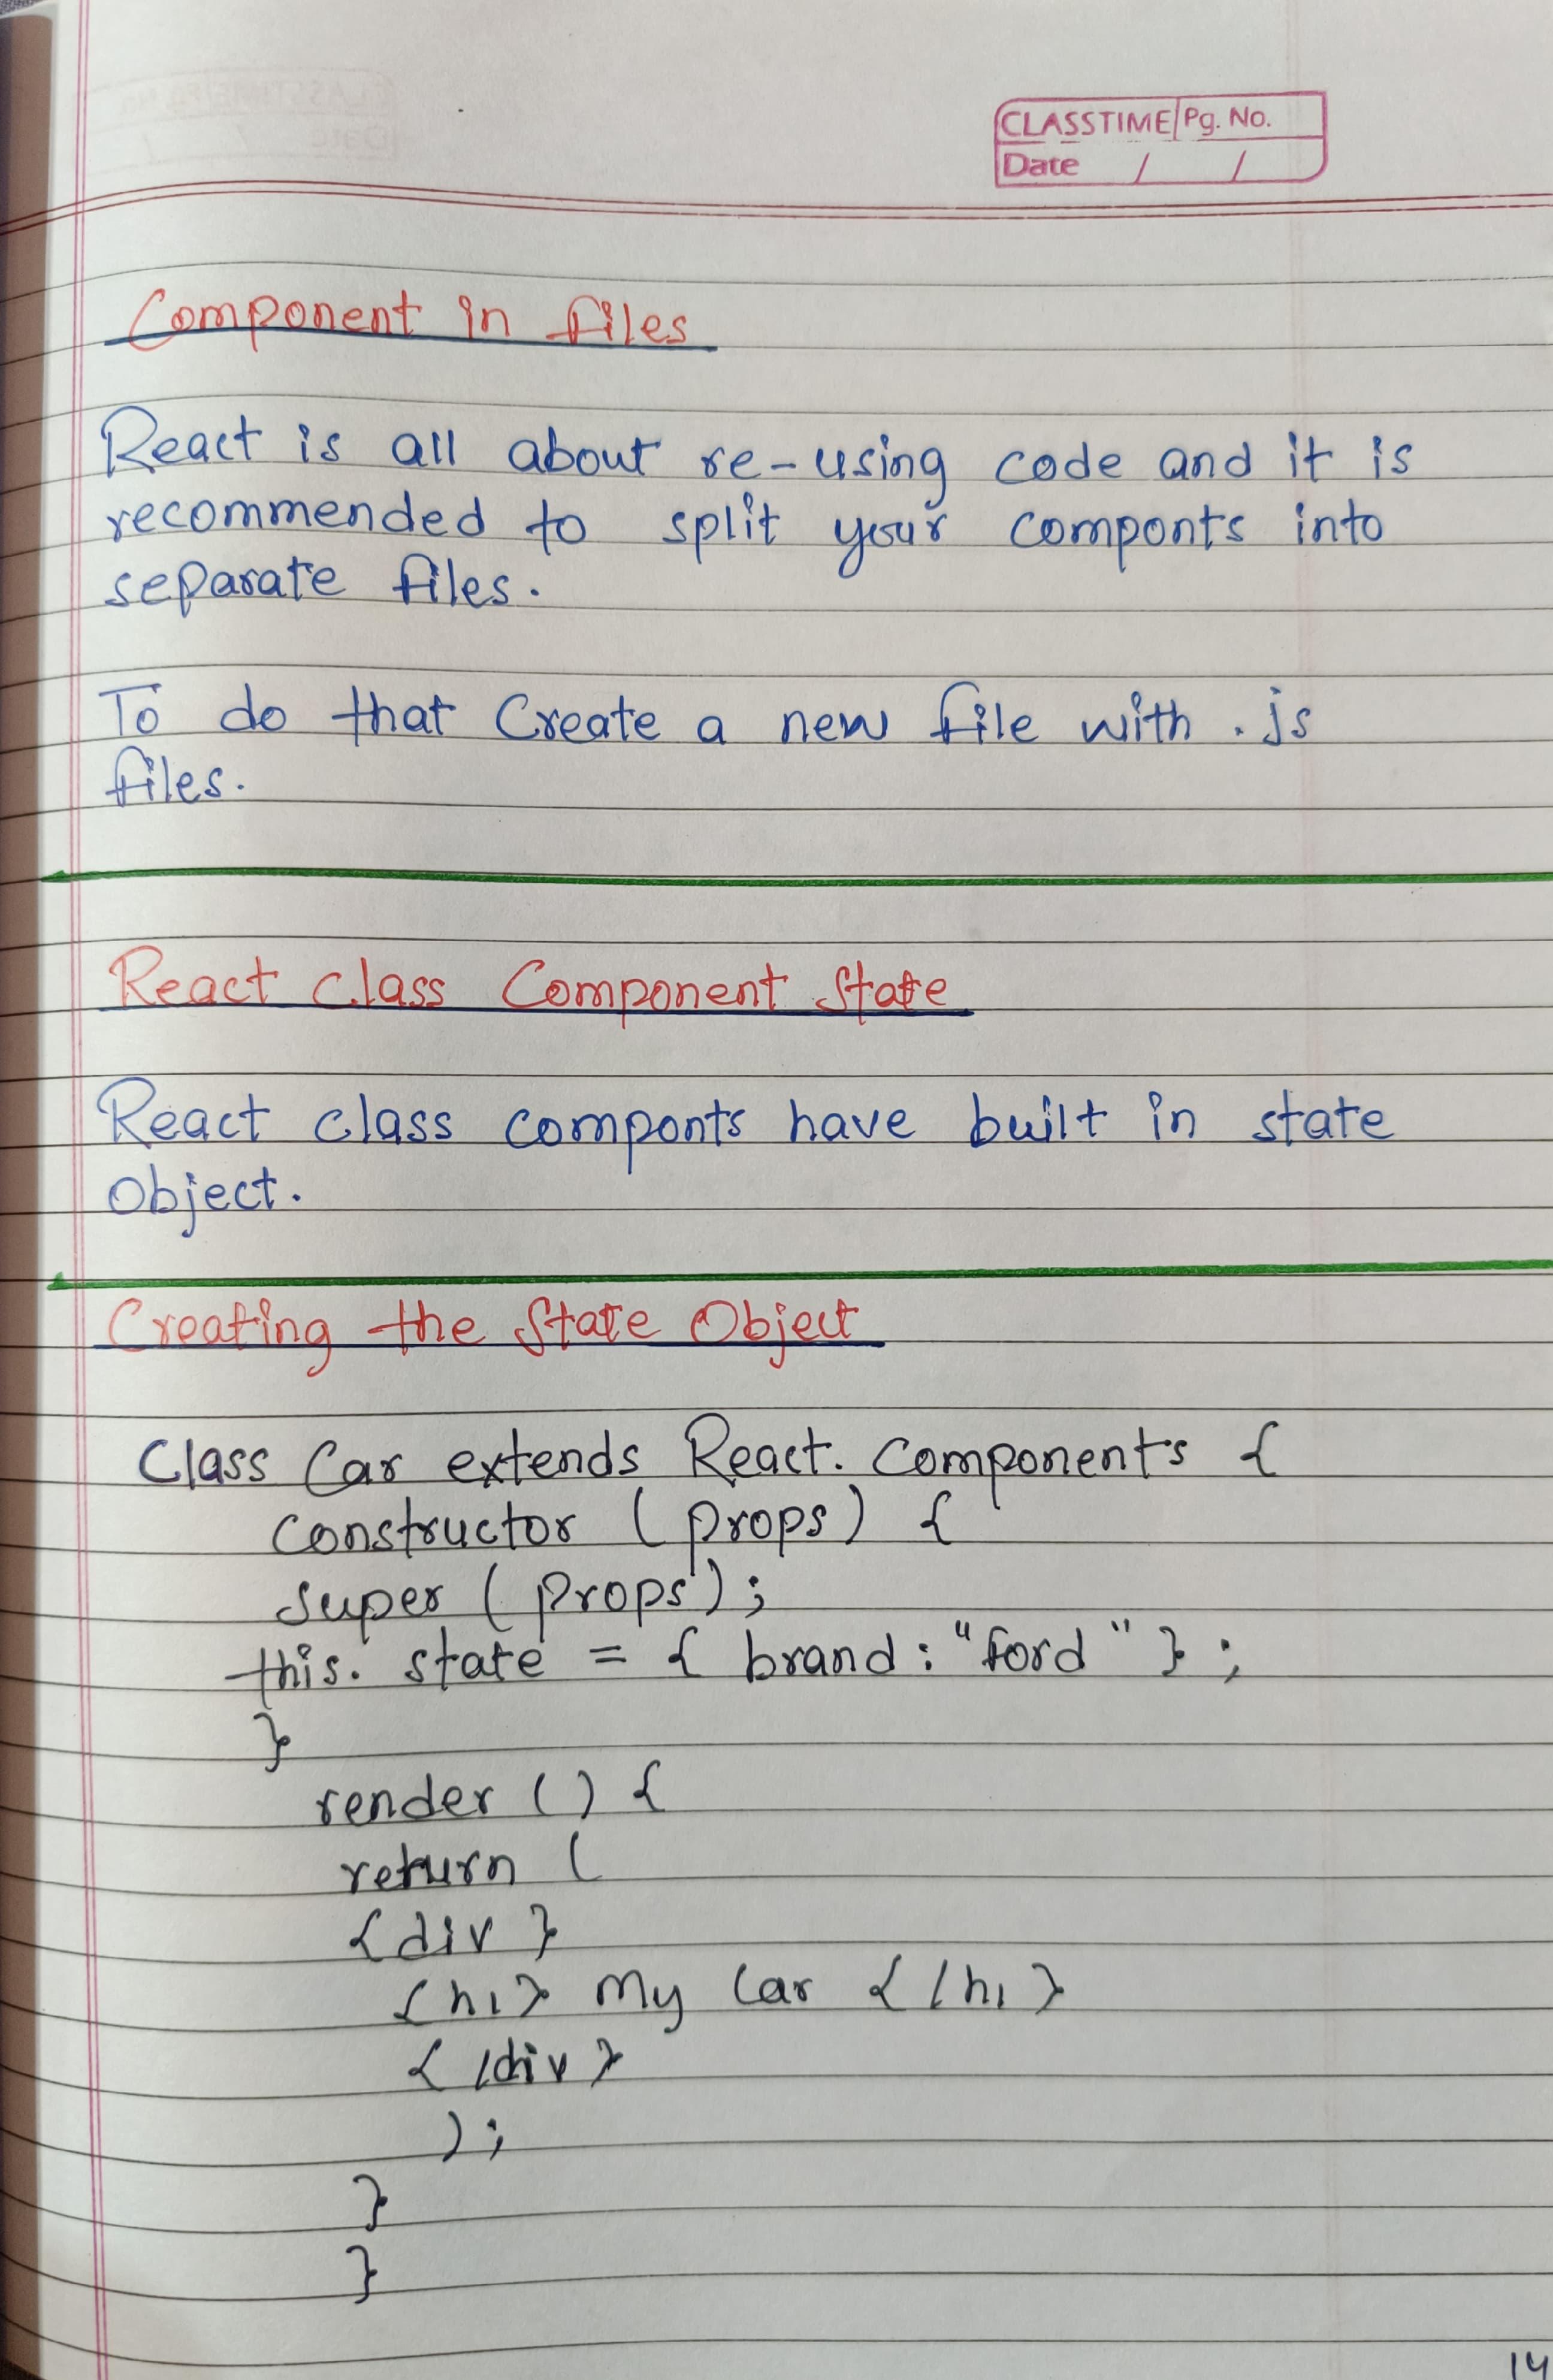 CLASSTIME Pg. No.
Date / /
Component in files
React is all about re-using code and it is
recommended to split your componts into
separate files.
To do that Create a new file with .js
files.
React class Component State
React class componts have built in state
Object.
Creating the State Object
Class Car extends React. Components {
constructor (props) {
super (props);
this. state = { brand : "ford" } ;
}
render () {
return (
{div }
{h1} My Car { /h1 }
{ /div }
);
}
}
14